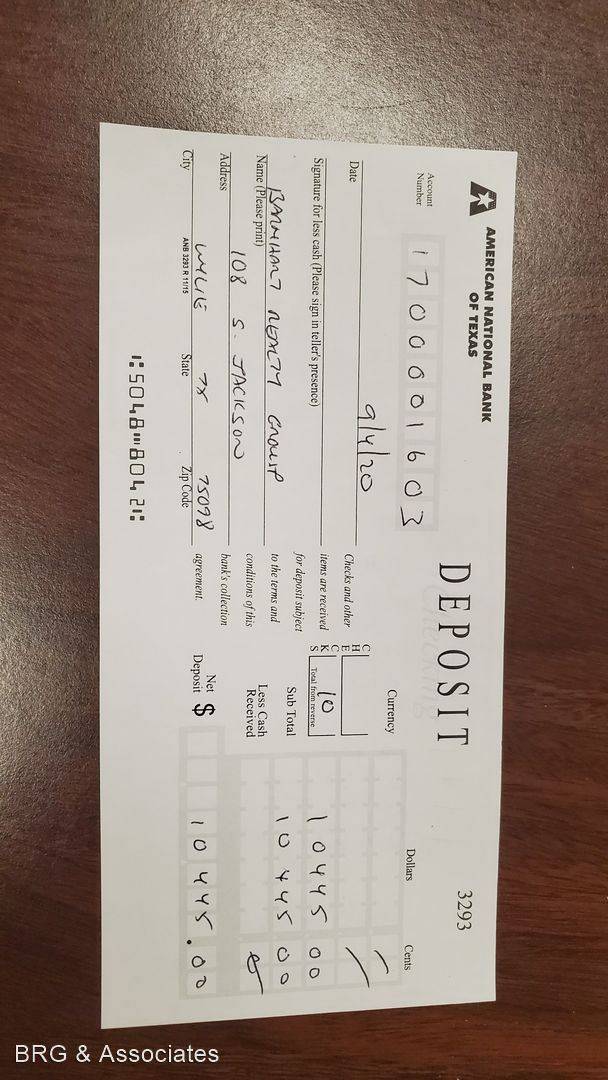 AMERICAN NATIONAL BANK
OF TEXAS
DEPOSIT
3293
Account
Number
1700001603
Currency
Dollars
Cents
Date
9/4/20
Checks and other
items are received
for deposit subject
to the terms and
conditions of this
bank's collection
agreement.
CHECKS
10
Total from reverse
10445 00
Signature for less cash (Please sign in teller's presence)
Sub Total
10445 00
BARNHART REALTY GROUP
Name (Please print)
Less Cash
Received
108 S. JACKSON
Address
Net
Deposit $
10445.00
WYLIE TX 75098
City
State
Zip Code
ANB 3293 R 11/15
⑆5048⑉8042⑆
BRG & Associates